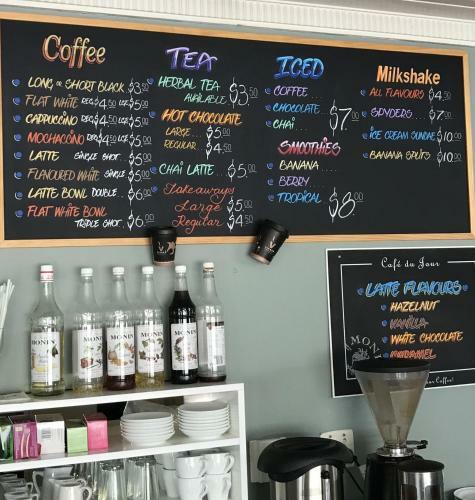 Coffee
LONG or SHORT BLACK $3.50
FLAT WHITE REG $4.50 LGE $5.00
CAPPUCCINO REG $4.50 LGE $5.00
MOCHACCINO REG $4.50 LGE $5.00
LATTE SINGLE SHOT $5.00
FLAVOURED WHITE SINGLE $5.00
LATTE BOWL DOUBLE $6.00
FLAT WHITE BOWL
TRIPLE SHOT $6.00
TEA
HERBAL TEA
AVAILABLE $3.50
HOT CHOCOLATE
LARGE $5.00
REGULAR $4.50
CHAI LATTE $5.00
Takeaways
Large $5.00
Regular $4.50
ICED
COFFEE
CHOCOLATE $7.00
CHAI
SMOOTHIES
BANANA
BERRY
TROPICAL $8.00
Milkshake
ALL FLAVOURS $4.50
SPYDERS $7.00
ICE CREAM SUNDAE $10.00
BANANA SPLITS $10.00
Café du Jour
LATTE FLAVOURS
HAZELNUT
VANILLA
WHITE CHOCOLATE
CARAMEL
MONIN
MONIN
MONIN
MONIN
MONIN
MONIN